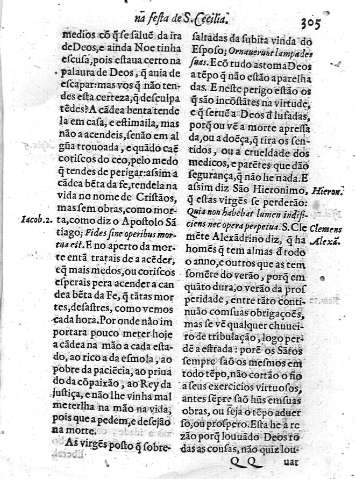 nã festa de S. Cecilia.
305
medios cõ q̃ se salue da ira
de Deos, e ainda Noe tinha
escusa, pois estaua certo na
palaura de Deos, q̃ auia de
escapar: mas vos q̃ não ten-
des esta certeza, q̃ desculpa
tẽdes? A cãdea benta tende
la em casa, e estimaila, mas
não a acendeis, senão em al
gũa trouoada, e quãdo caẽ
coriscos do ceo, pelo medo
q̃ tendes de perigar: assim a
cãdea bẽta da fe, tendela na
vida no nome de Cristãos,
mas sem obras, como mor-
Iacob. 2.
ta, como diz o Apostolo Sã
tiago; Fides sine operibus mor-
tua est. E no aperto da mor-
te entã tratais de a acẽder,
eq̃ mais medos, ou coriscos
esperais pera acender a can
dea bẽta da Fe, q̃ tãtas mor
tes, desastres, como vemos
cada hora. Por onde não im
portara pouco meter hoje
a cãdea na mão a cada esta-
do, ao rico a da esmola, ao
pobre da paciẽcia, ao priua
do da cõpaixão, ao Rey da
justiça, e não lhe vinha mal
meterlha na mão na vida,
pois que a pedem, e desejão
na morte.
As virgẽs posto q̃ sobre-
saltadas da subita vinda do
Esposo; Ornauerunt lampades
suas. E cõ tudo as toma Deos
a tẽpo q̃ não estão aparelha
das. E neste perigo estão os
q̃ são incõstãtes na virtude,
e q̃ seruẽ a Deos q̃ lufadas,
porq̃ ou vẽ a morte apressa
da, ou a doẽça, q̃ tira os sen-
tidos, ou a crueldade dos
medicos, e parẽtes que dão
segurança, q̃ não he nada. E
assim diz São Hieronimo,
Hieron.
q̃ estas virgẽs se perderão:
Quia non habebat lumen indefi-
ciens nec opera perpetua. S. Cle
Clemens
mẽte Alexãdrino diz, q̃ ha
Alexã.
homẽs q̃ tem almas d̃ todo
o anno, e outros que as tem
somẽte do verão, porq̃ em
quãto dura, o verão da pros
peridade, entre tãto conti-
nuão com suas obrigaçoẽs,
mas se vẽ qualquer chuuei-
ro de tribulação, logo per-
dẽ a estrada: porẽ os Sãtos
sempre saõ os mesmos em
todo tẽpo, não cortão o fio
a seus exercicios virtuosos,
antes sẽpre saõ hũs em suas
obras, ou seja o tẽpo aduer
so, ou prospero. Esta he a re
zão porq̃ louuãdo Deos to
das as cousas, não quiz lou-
Q Q
uar